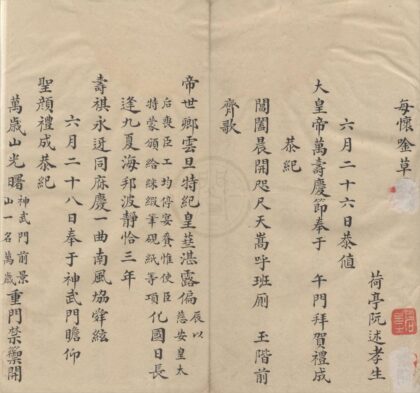 每懷唫草
荷亭阮述孝生
六月二十六日恭值
大皇帝萬壽慶節奉于 午門拜賀禮成
恭紀
閶闔晨開咫尺天嵩呼班厠 玉階前
齊歌
帝世卿雲旦特紀皇筵湛露偏
辰以
慈安皇太
后喪臣工均停宴惟使臣
特蒙頒給綵緞筆硯紙等項
化國日長
逢九夏海邦波靜恰三年
壽祺永迓同庥慶一曲南風協舜絃
六月二十八日奉于神武門瞻仰
聖顏禮成恭紀
萬歲山光曙
神武門前景
山一名萬歲
重門禁籞開